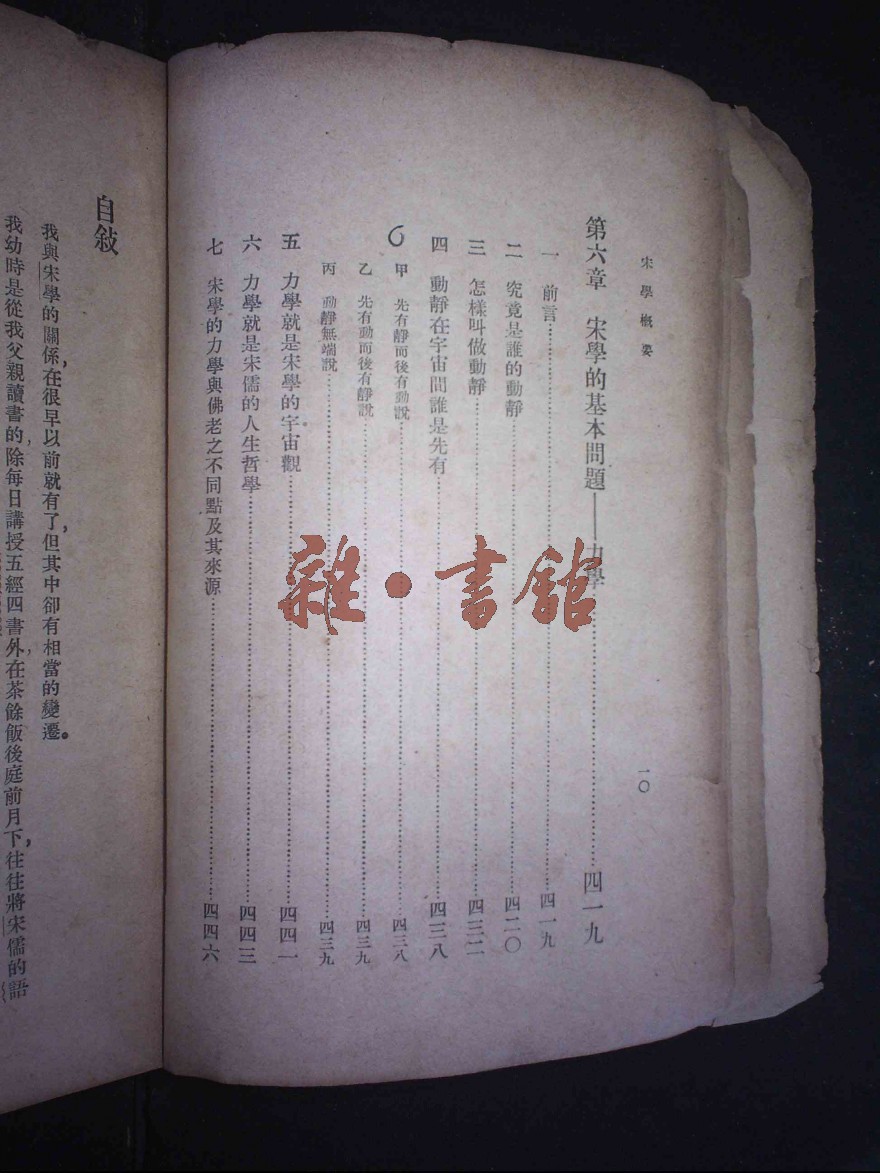 宋學概要
一〇
第六章　宋學的基本問題——力學……四一九
一　前言……四一九
二　究竟是誰的動靜……四二〇
三　怎樣叫做動靜……四三二
四　動靜在宇宙間誰是先有……四三八
甲　先有靜而後有動說……四三八
乙　先有動而後有靜說……四三九
丙　動靜無端說……四三九
五　力學就是宋學的宇宙觀……四四一
六　力學就是宋儒的人生哲學……四四三
七　宋學的力學與佛老之不同點及其來源……四四六
自敍
我與宋學的關係，在很早以前就有了，但其中卻有相當的變遷。
我幼時是從我父親讀書的，除每日講授五經四書外，在茶餘飯後庭前月下，往往將宋儒的語
雜·書館